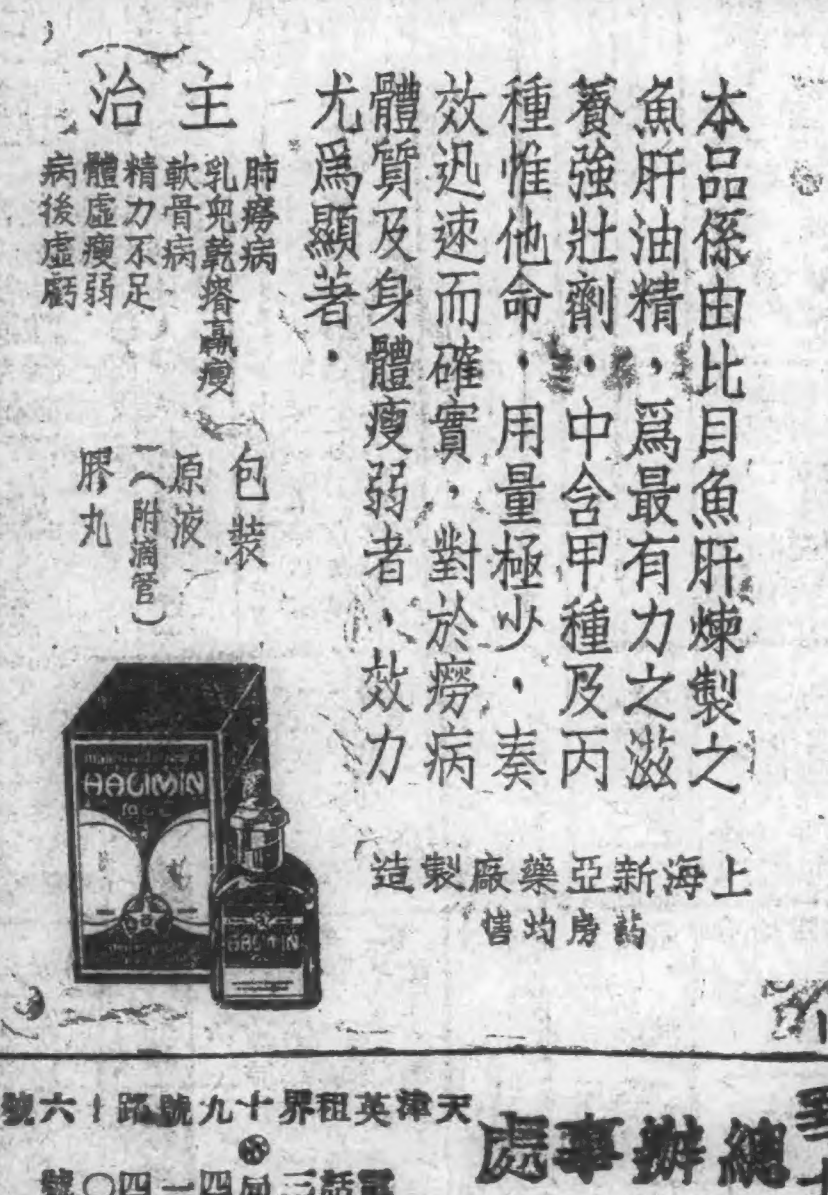 本品係由比目魚肝煉製之
魚肝油精，爲最有力之滋
養強壯劑，中含甲種及丙
種惟他命，用量極少，奏
效迅速而確實，對於癆病
體質及身體瘦弱者，效力
尤爲顯著．
主治
肺癆病
乳兒乾瘠羸瘦
軟骨病
精力不足
體虛瘦弱
病後虛虧
包裝
原液
（附滴管）
膠丸
HALIMIN
10 C.C.
HALIMIN
上海新亞藥廠製造
藥房均售
總辦事處
天津英租界十九號路十六號
電話三局四一四〇號